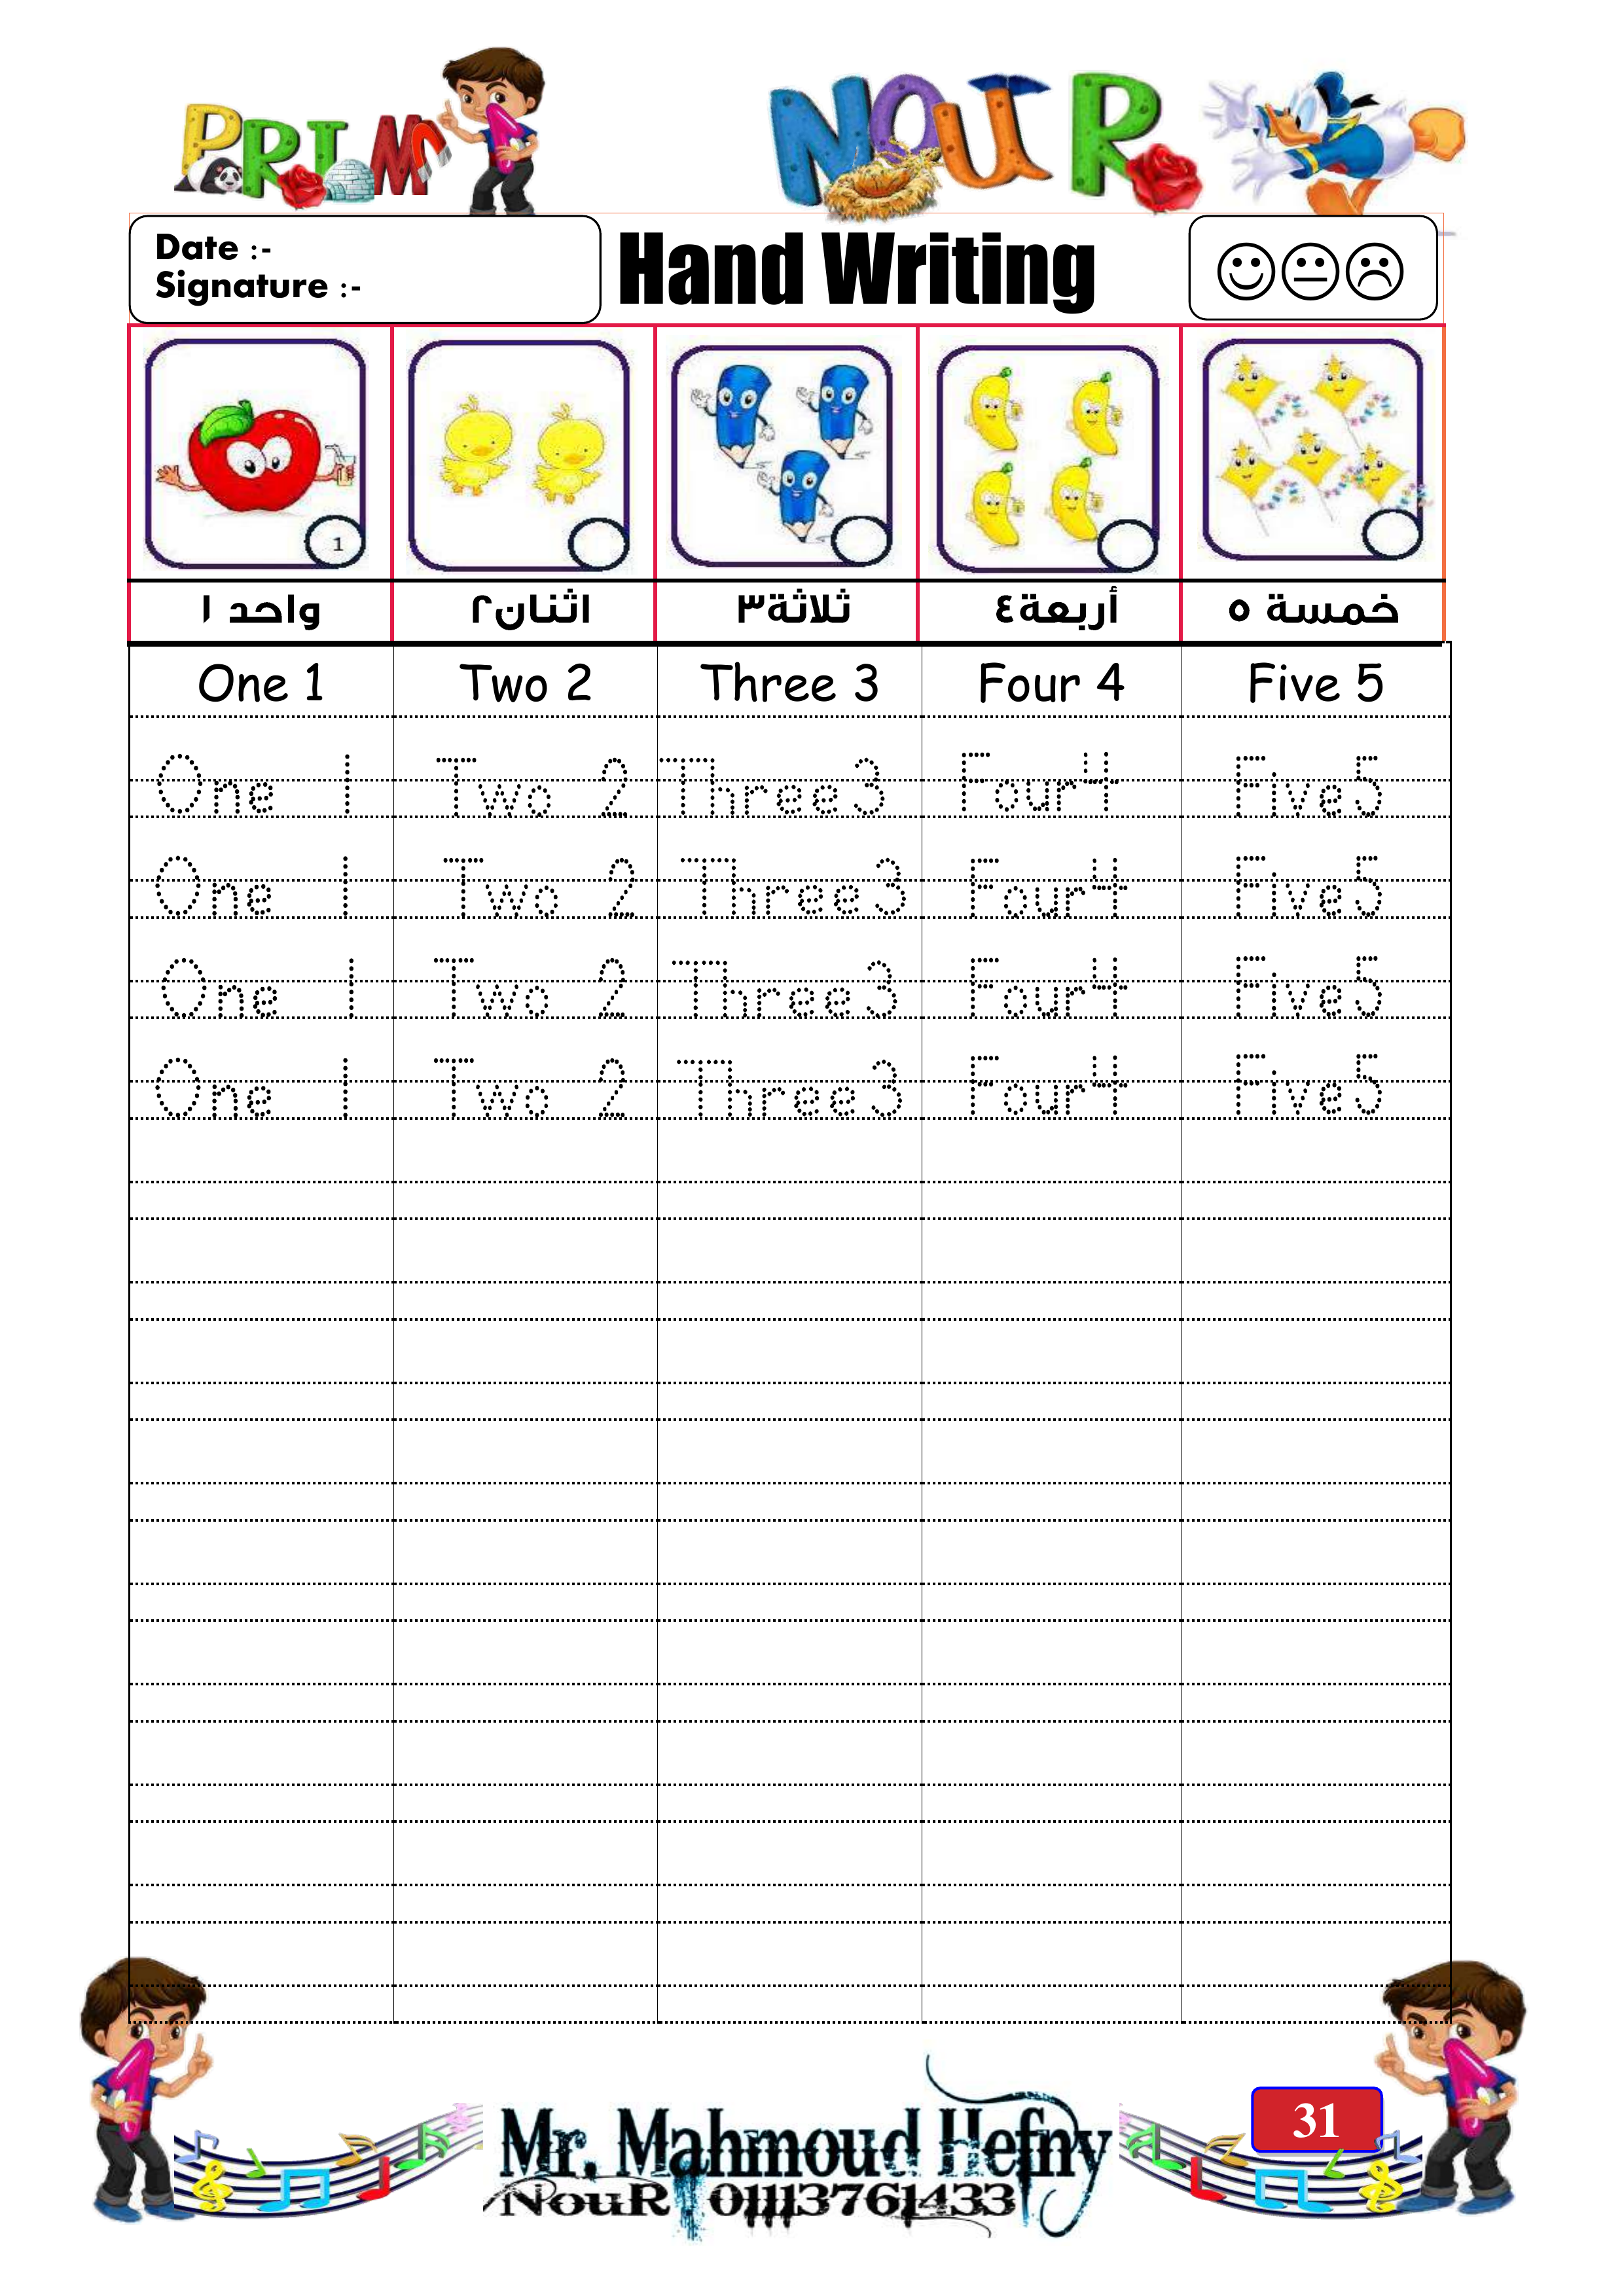 PRIM 1
NOUR
Date :-
Signature :-
Hand Writing
1
واحد ١
اثنان٢
ثلاثة٣
أربعة٤
خمسة ٥
One 1 Two 2 Three 3 Four 4 Five 5
One 1 Two 2 Three3 Four4 Five5
One 1 Two 2 Three3 Four4 Five5
One 1 Two 2 Three3 Four4 Five5
One 1 Two 2 Three3 Four4 Five5
31
Mr. Mahmoud Hefny
NouR 01113761433